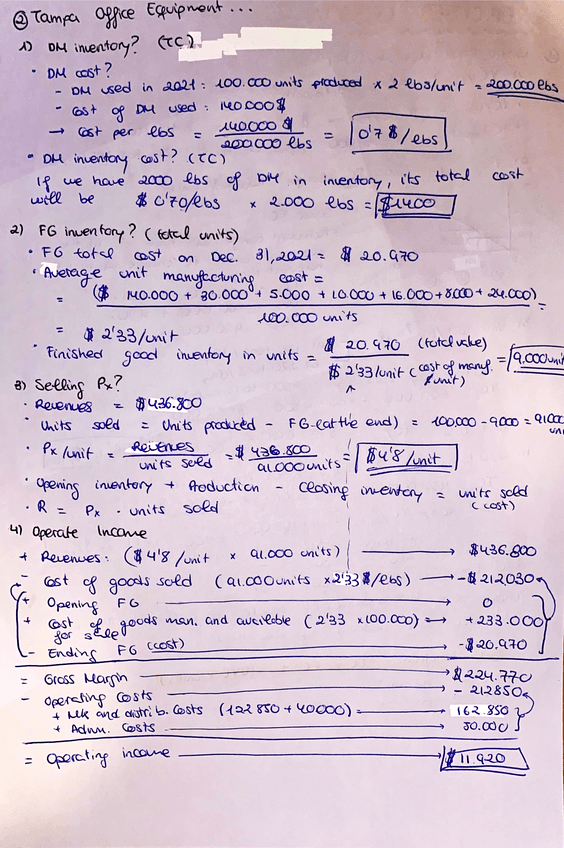 ② Tampa Office Equipment...
1) DM inventory? (TC)
· DM cost?
- DM used in 2021: 100.000 units produced × 2 lbs/unit = 200.000 lbs
- Cost of DM used: 140.000$
→ Cost per lbs = 140.000 $ / 200.000 lbs = 0'7 $/lbs
· DM inventory cost? (TC)
If we have 2000 lbs of DM in inventory, its total cost
will be $ 0'70/lbs × 2.000 lbs = $1400
2) FG inventory? (total units)
· FG total cost on Dec. 31, 2021 = $ 20.970
· Average unit manufacturing cost =
= ($ 140.000 + 30.000 + 5.000 + 10.000 + 16.000 + 8.000 + 24.000) / 100.000 units =
= $ 2'33/unit
· Finished good inventory in units = $ 20.970 (total value) / $ 2'33/unit (cost of manuf. $/unit) = 9.000 units
3) Selling Px?
· Revenues = $436.800
· Units sold = Units produced - FG (at the end) = 100.000 - 9.000 = 91.000 uni
· Px/unit = Revenues / units sold = $ 436.800 / 91.000 units = $4'8/unit
· Opening inventory + Production - Closing inventory = units sold (cost)
· R = Px · units sold
4) Operate Income
+ Revenues: ($4'8/unit × 91.000 units) → $436.800
- Cost of goods sold (91.000 units × 2'33 $/lbs) → -$212030
+ Opening FG → 0
+ Cost of goods man. and available for sale (2'33 × 100.000) → +233.000
- Ending FG (cost) → -$20.970
= Gross Margin → $224.770
- Operating Costs → - 212850
+ Mk and distrib. Costs (122 850 + 40000) → 162.850
+ Adm. Costs → 50.000
= Operating income → $ 11.920